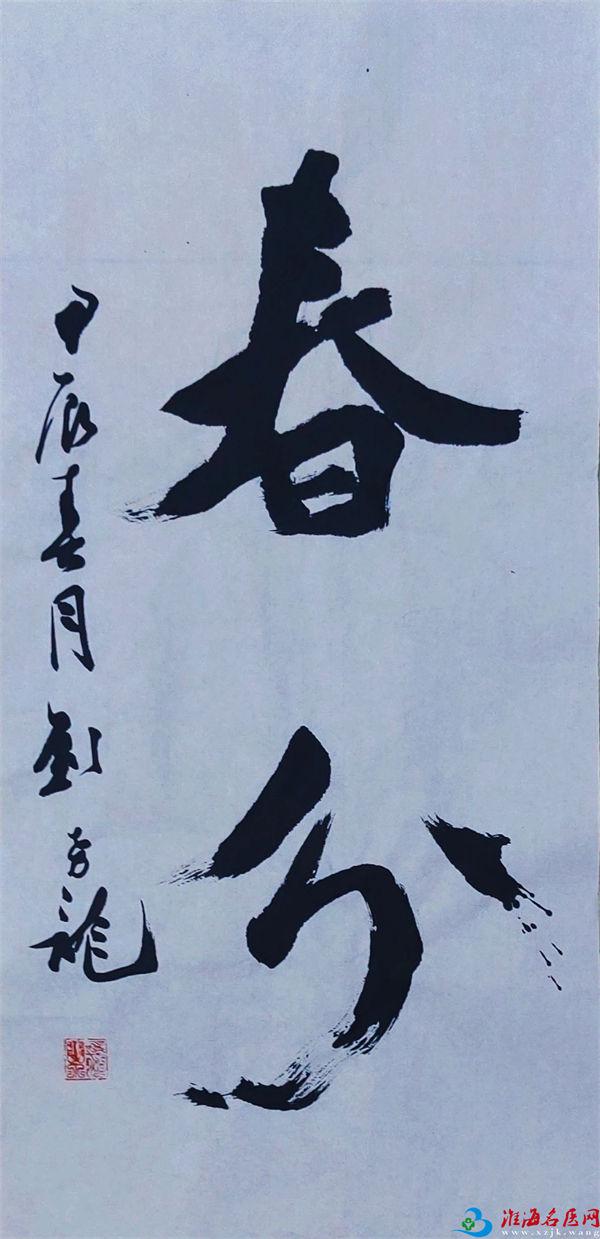 春分
甲辰春月 刘方龍
淮海名医网
www.xzjk.wang